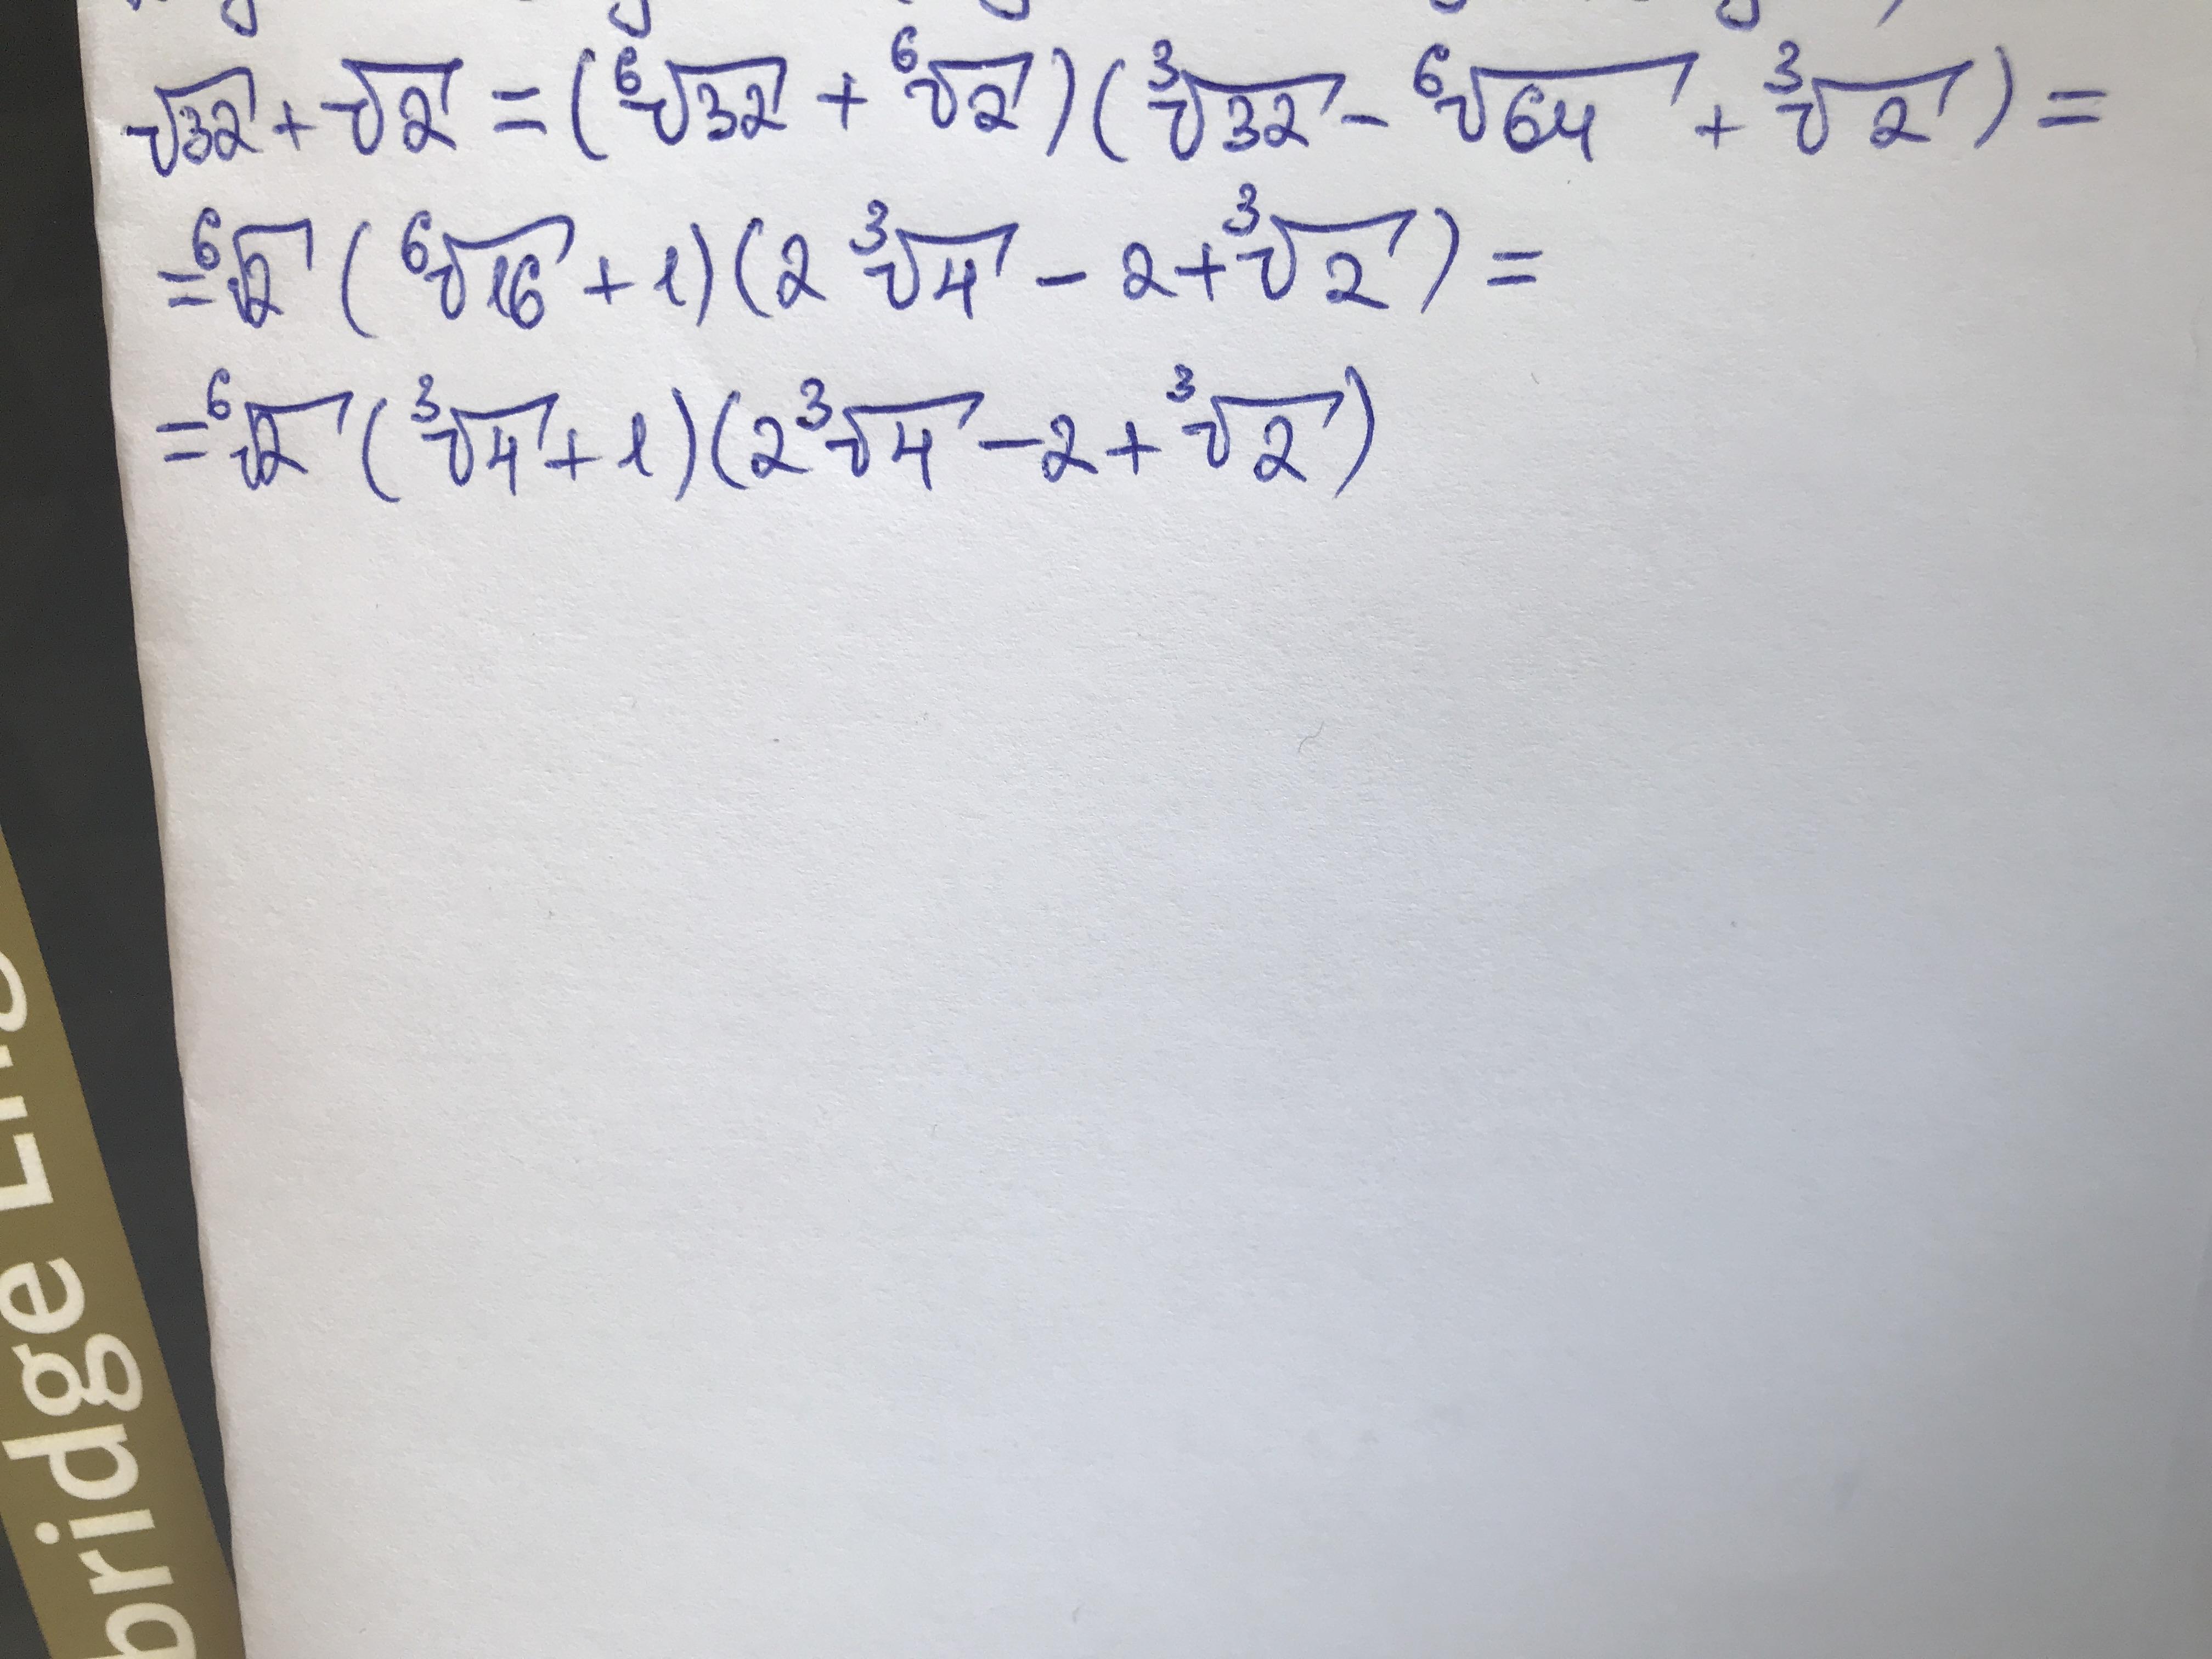 √32 + √2 = (⁶√32 + ⁶√2)(³√32 - ⁶√64 + ³√2) =
= ⁶√2 (⁶√16 + 1)(2 ³√4 - 2 + ³√2) =
= ⁶√2 (³√4 + 1)(2 ³√4 - 2 + ³√2)
bridge